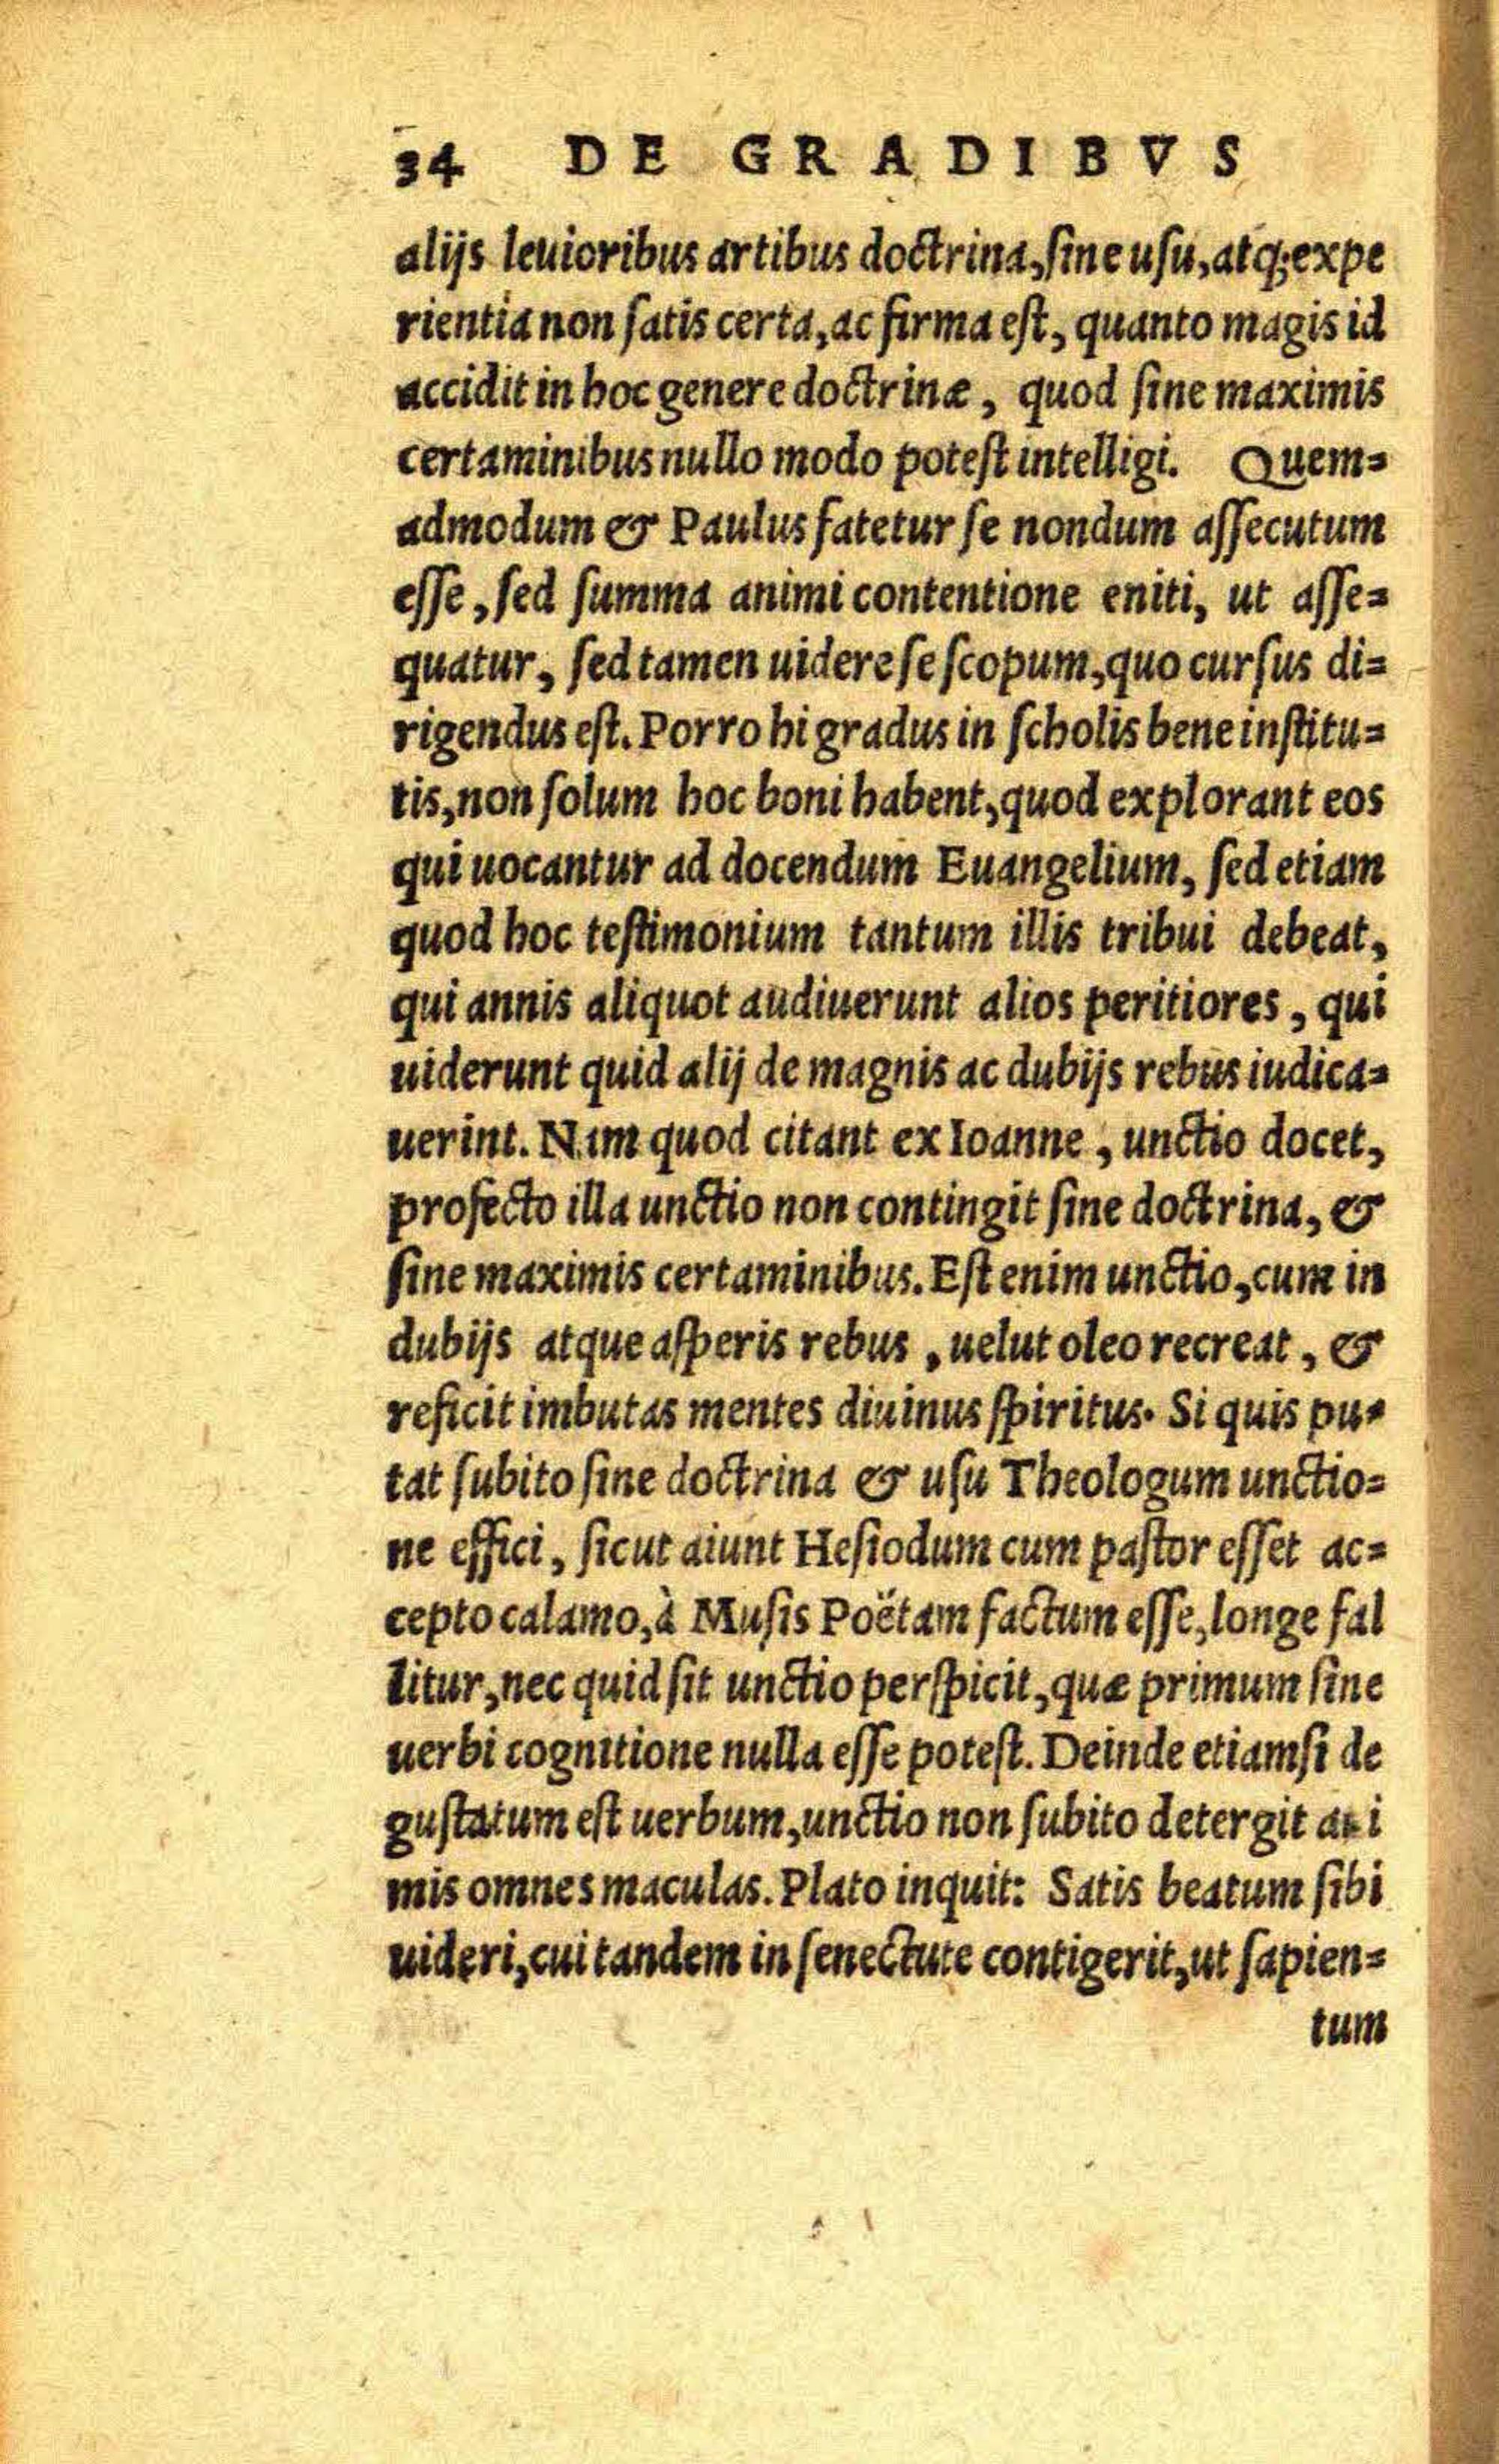 34 DE GRADIBVS
alijs leuioribus artibus doctrina, sine usu, atq; expe
rientia non satis certa, ac firma est, quanto magis id
accidit in hoc genere doctrinæ, quod sine maximis
certaminibus nullo modo potest intelligi. Quem=
admodum & Paulus fatetur se nondum assecutum
esse, sed summa animi contentione eniti, ut asse=
quatur, sed tamen uidere se scopum, quo cursus di=
rigendus est. Porro hi gradus in scholis bene institu=
tis, non solum hoc boni habent, quod explorant eos
qui uocantur ad docendum Euangelium, sed etiam
quod hoc testimonium tantum illis tribui debeat,
qui annis aliquot audiuerunt alios peritiores, qui
uiderunt quid alij de magnis ac dubijs rebus iudica=
uerint. Nam quod citant ex Ioanne, unctio docet,
profecto illa unctio non contingit sine doctrina, &
sine maximis certaminibus. Est enim unctio, cum in
dubijs atque asperis rebus, uelut oleo recreat, &
reficit imbutas mentes diuinus spiritus. Si quis pu=
tat subito sine doctrina & usu Theologum unctio=
ne effici, sicut aiunt Hesiodum cum pastor esset ac=
cepto calamo, à Musis Poëtam factum esse, longe fal
litur, nec quid sit unctio perspicit, quæ primum sine
uerbi cognitione nulla esse potest. Deinde etiamsi de
gustatum est uerbum, unctio non subito detergit ani
mis omnes maculas. Plato inquit: Satis beatum sibi
uideri, cui tandem in senectute contigerit, ut sapien=
tum